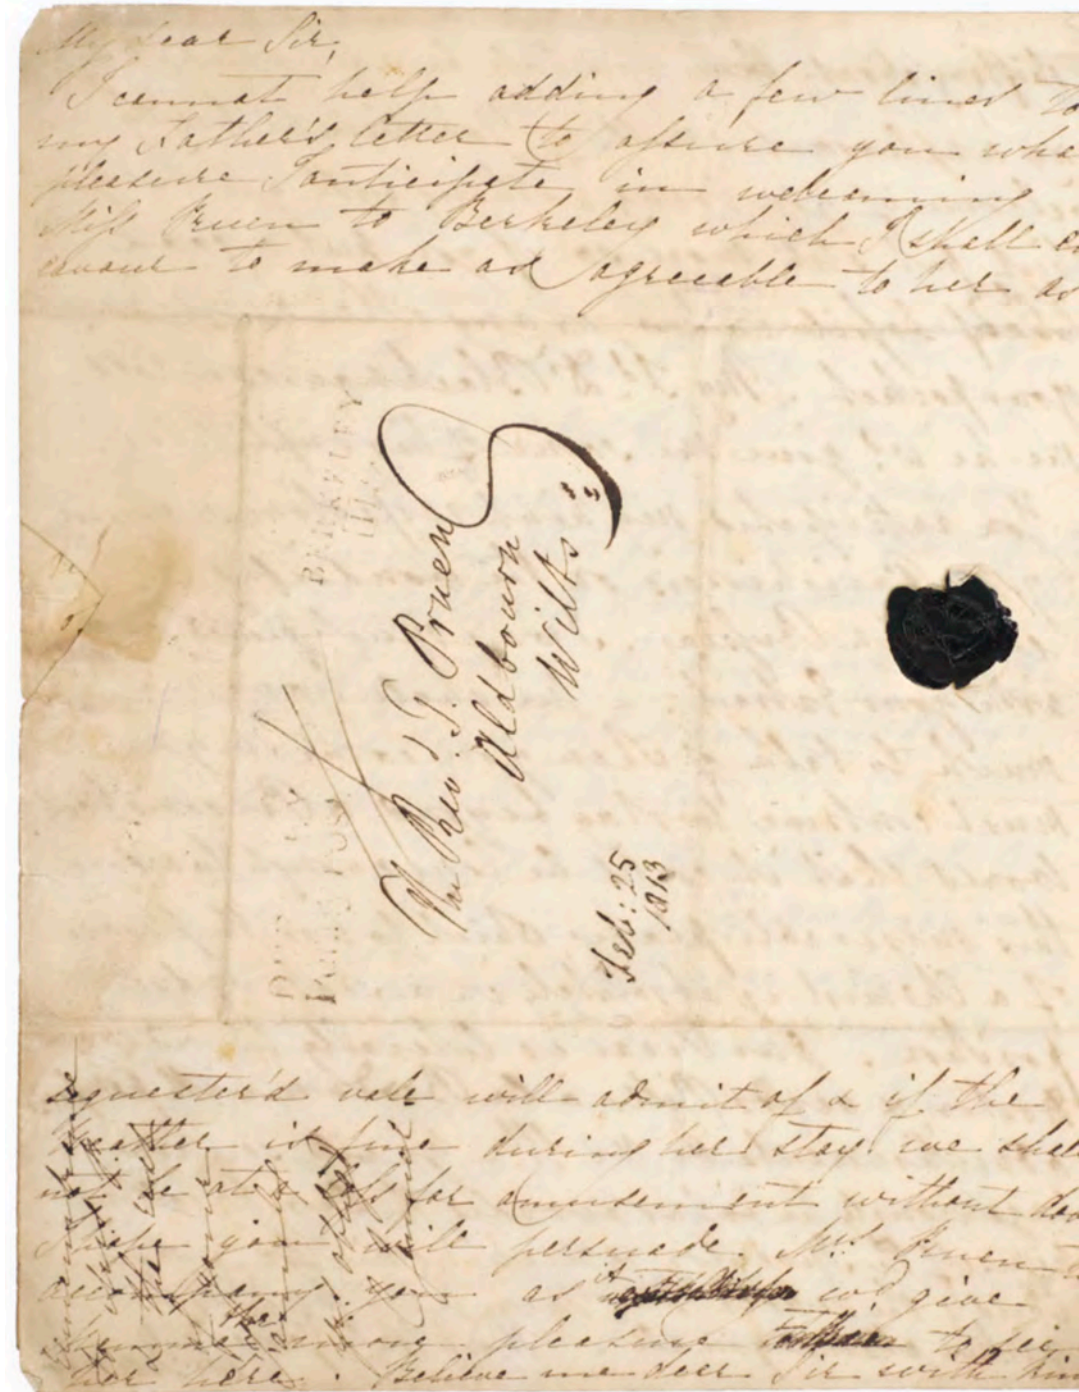 My dear Sir,
I cannot help adding a few lines to
my Father's letter to assure you wha
pleasure I anticipate in welcoming
Miss Pruen to Berkeley which I shall e
avour to make as agreeable to her as
BERKELEY
The Revd. T. Pruen
Aldbourn
Wilts
Feb: 25
1813
Penny Post
sequester'd vale will admit of & if the
weather is fine during her stay we shall
not be at a loss for amusement without doo
I hope you will persuade Mrs. Pruen
accompany you as it wd. give
more pleasure to see
her here. Believe me dear Sir with kin